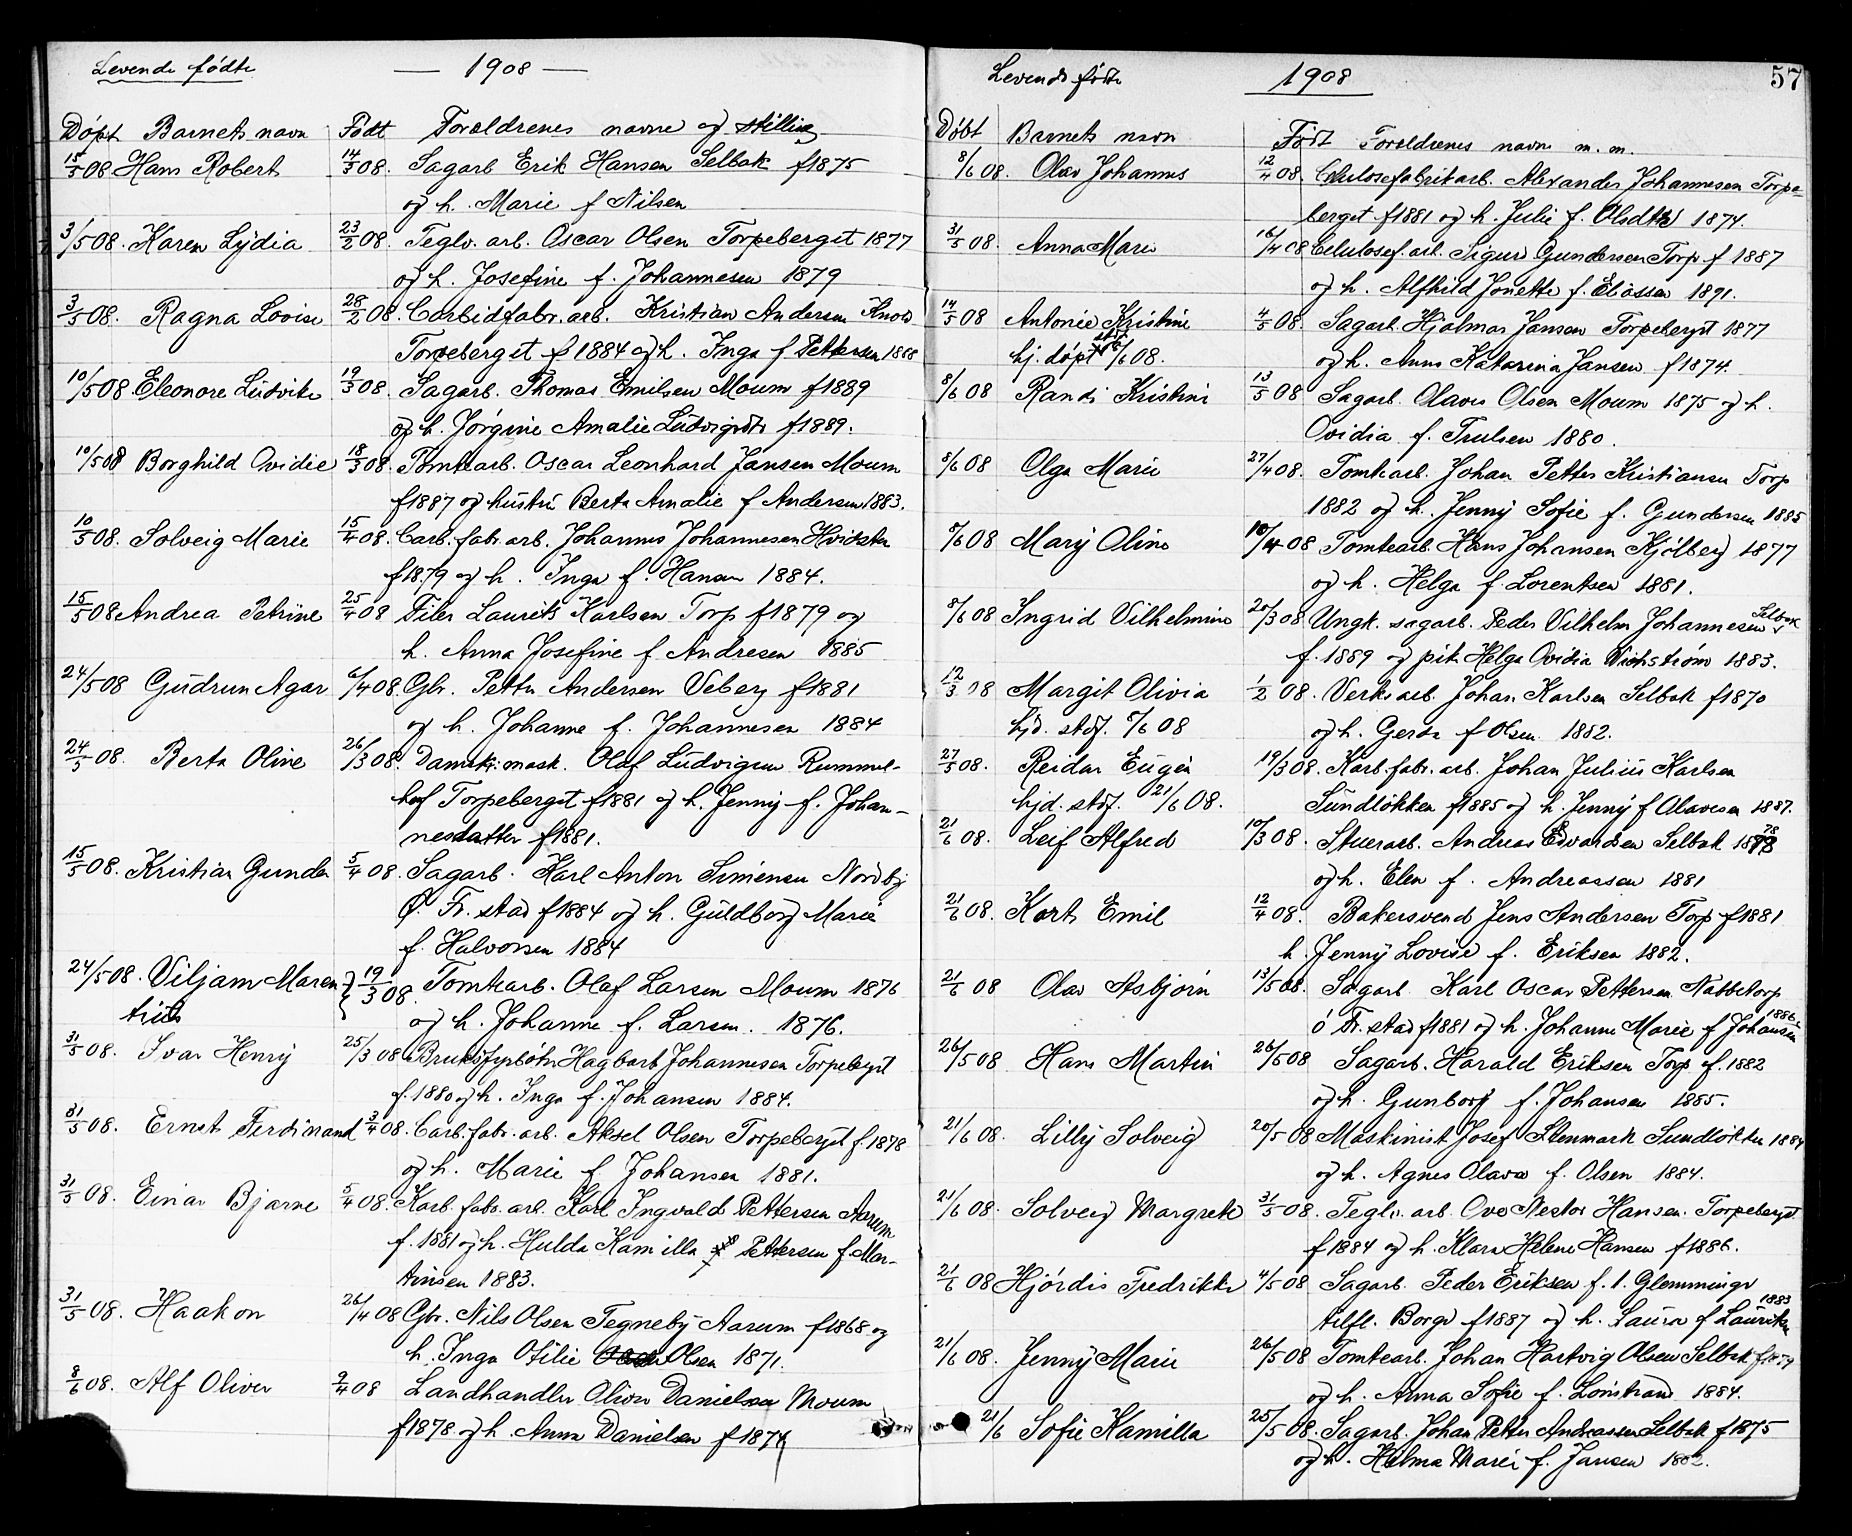 Levende fødte — 1908 —
Døpt Barnets navn Født Foreldrenes navne og stilling
15/5 08 Hans Robert 14/3 08. Sagarb Erik Hansen Selbak f 1875
og h. Marie f Nilsen
3/5 08. Karen Lydia 23/2 08. Teglv. arb. Oscar Olsen Torpeberget 1877
og h. Josefine f. Johannesen 1879
3/5 08. Ragna Lovise 28/2 08. Carbidfabr. arb. Kristian Andersen
Torpeberget f 1884 og h. Inga f Pettersen 1888
10/5 08 Eleonore Ludvike 19/3 08. Sagarb. Thomas Emilsen Moum f 1889
og h. Jørgine Amalie Ludvigsdtr f 1889.
10/5 08 Borghild Ovidie 18/3 08. Tomtearb. Oscar Leonhard Jansen Moum
f 1887 og hustru Berta Amalie f Andersen 1883.
10/5 08. Solveig Marie 15/4 08. Carb. fabr. arb. Johannes Johannesen Hvidsten
f 1879 og h. Inga f. Hansen 1884.
15/5 08 Andrea Petrine 25/4 08 Filer Laurits Karlsen Torp f 1879 og
h. Anna Josefine f Andresen 1885
24/5 08 Gudrun Agar 6/4 08. Gbr. Petter Andersen Veberg f 1881
og h. Johanne f. Johannesen 1884
24/5 08. Berta Oline 26/3 08. Dampsk. mask. Olaf Ludvigsen Rummel-
hof Torpeberget f 1881 og h. Jenny f. Johan-
nesdatter f 1881.
15/5 08. Kristian Gunder 5/4 08. Sagarb. Karl Anton Simensen Nordby
Ø. Fr. stad f 1884 og h. Guldborg Marie
f. Halvorsen 1884
24/5 08. Viljam Maren} 19/3 08 Tomtearb. Olaf Larsen Moum 1876
tius og h. Johanne f. Larsen. 1876.
31/5 08. Ivar Henry 25/3 08 Bruksfyrbøter Hagbart Johannesen Torpeberget
f. 1880 og h. Inga f. Johansen 1884.
31/5 08. Ernst Ferdinand 3/4 08. Carb. fabr. arb. Aksel Olsen Torpeberget f. 1878
og h. Marie f Johansen 1881.
31/5 08. Einar Bjarne 5/4 08. Karb. fabr. arb. Karl Ingvald Pettersen Aarum
f. 1881 og h. Hulda Kamilla Pettersen f. Mar-
tinsen 1883.
31/5 08. Haakon 26/4 08 Gbr. Nils Olsen Tegneby Aarum f 1868 og
h. Inga Otilie Olsen 1871.
8/6 08. Alf Oliver 9/4 08 Landhandler Oliver Danielsen Moum
f 1878 og h. Anna Danielsen f 1874
Levende fødte 1908 57
Døbt Barnets navn Født Foreldrenes navne m. m.
8/6 08. Olav Johannes 12/4 08. Celulosefabrikarb. Alexander Johannesen Torpe-
berget f 1881 og h. Julie f. Olsdtr 1874.
31/5 08. Anna Marie 16/4 08 Celulosef. arb. Sigurd Gundersen Torp f 1887
og h. Alfhild Jonette f. Eliassen 1891.
14/5 08 Antonie Kristine 4/5 08. Sagarb. Hjalmar Jansen Torpeberget 1877
hj. døpt /6 08. og h. Anna Katarina Jansen f 1874.
8/6 08 Randi Kristine 13/5 08 Sagarb. Olaves Olsen Moum 1875 og h.
Ovidia f. Trulsen 1880.
8/6 08 Olga Marie 27/4 08. Tomtearb. Johan Petter Kristiansen Torp
1882 og h. Jenny Sofie f. Gundersen 1885
8/6 08 Mary Oline 10/4 08 Tomtearb. Hans Johansen Kjølberg 1877
og h. Helga f Lorentsen 1881.
8/6 08 Ingrid Vilhelmine 20/3 08 Ungk. sagarb. Peder Vilhelm Johannesen Selbak
f. 1889 og pik. Helga Ovidia Vichstrøm 1883.
12/3 08 Margit Olivia 1/2 08. Verks arb. Johan Karlsen Selbak f 1870
hjd. stdf. 8/6 08 og h. Gerda f Olsen 1882.
27/5 08. Reidar Eugen 19/3 08. Karb. fabr. arb. Johan Julius Karlsen
hjd. stdf. 21/6 08. Sundløkken f 1885 og h. Jenny f Olavesen 1887.
21/6 08. Leif Alfred 10/3 08. Stuerarb. Andreas Edvardsen Selbak 1878
og h. Elen f. Andreassen 1881
21/6 08. Kort Emil 12/4 08. Bakersvend Jens Andersen Torp f 1881
h. Jenny Lovise f. Eriksen 1882.
21/6 08 Olav Asbjørn 13/5 08. Sagarb. Karl Oscar Pettersen Nabbetorp
Ø Fr. stad f 1881 og h. Johanne Marie f Johansen 1886
26/5 08 Hans Martin 26/5 08 Sagarb. Harald Eriksen Torp f. 1882
og h. Gunborg f. Johansen 1885.
21/6 08. Lilly Solveig 20/5 08 Maskinist Josef Stenmark Sundløkken 1884
og h. Agnes Olava f. Olsen 1884.
21/6 08. Solveig Margrete 31/5 08. Teglv. arb. Ove Nestor Hansen. Torpeberget
f 1884 og h. Klara Helene Hansen f 1886.
21/6 08 Hjørdis Fredrikke 4/5 08 Sagarb. Peder Eriksen f. i. Glemminge
tilfl. Borge f 1887 og h. Laura f Lauritsen 1883
21/6 08. Jenny Marie 26/5 08 Tomtearb. Johan Hartvig Olsen Selbak
og h. Anna Sofie f. Lønstrand 1884.
21/6 Sofie Kamilla 25/5 08. Sagarb. Johan Petter Andreassen Selbak f 1875
og h. Helma Marie f. Jansen 1882.